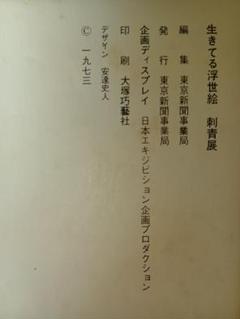 生きてる浮世絵　刺青展
編　集　東京新聞事業局
発　行　東京新聞事業局
企画ディスプレイ　日本エキジビション企画プロダクション
印　刷　大塚巧藝社
デザイン　安達史人
©　一九七三